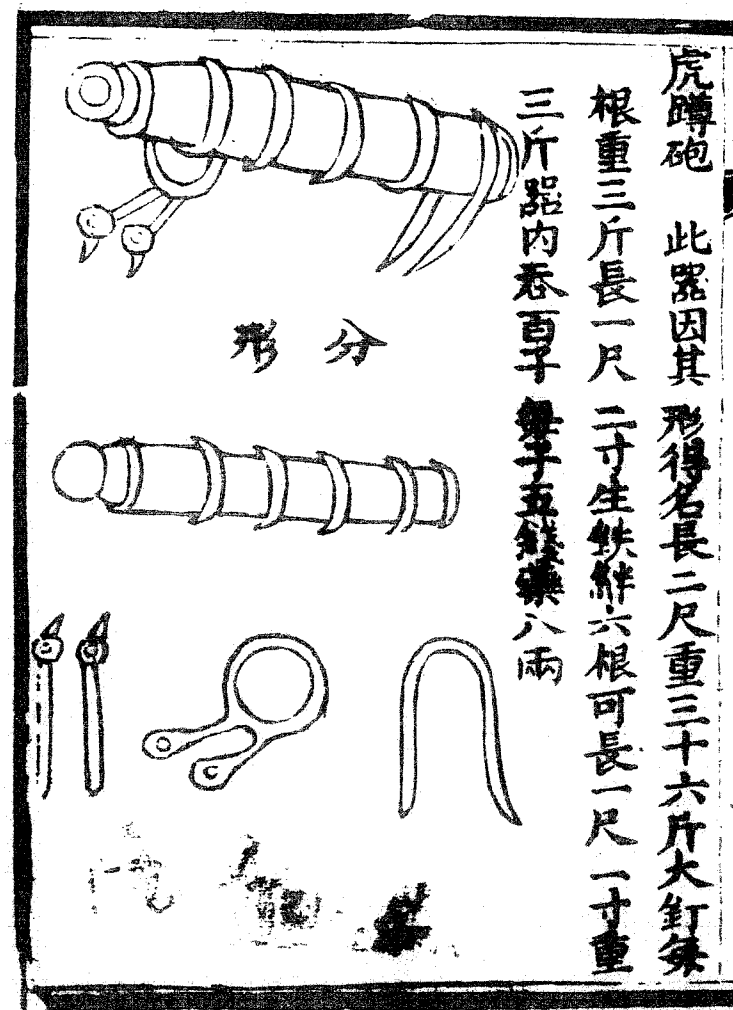 虎蹲砲　此器因其形得名長二尺重三十六斤大釘每
根重三斤長一尺二寸生鉄絆六根可長一尺一寸重
三斤器内吞百子每子五錢藥八兩
分形